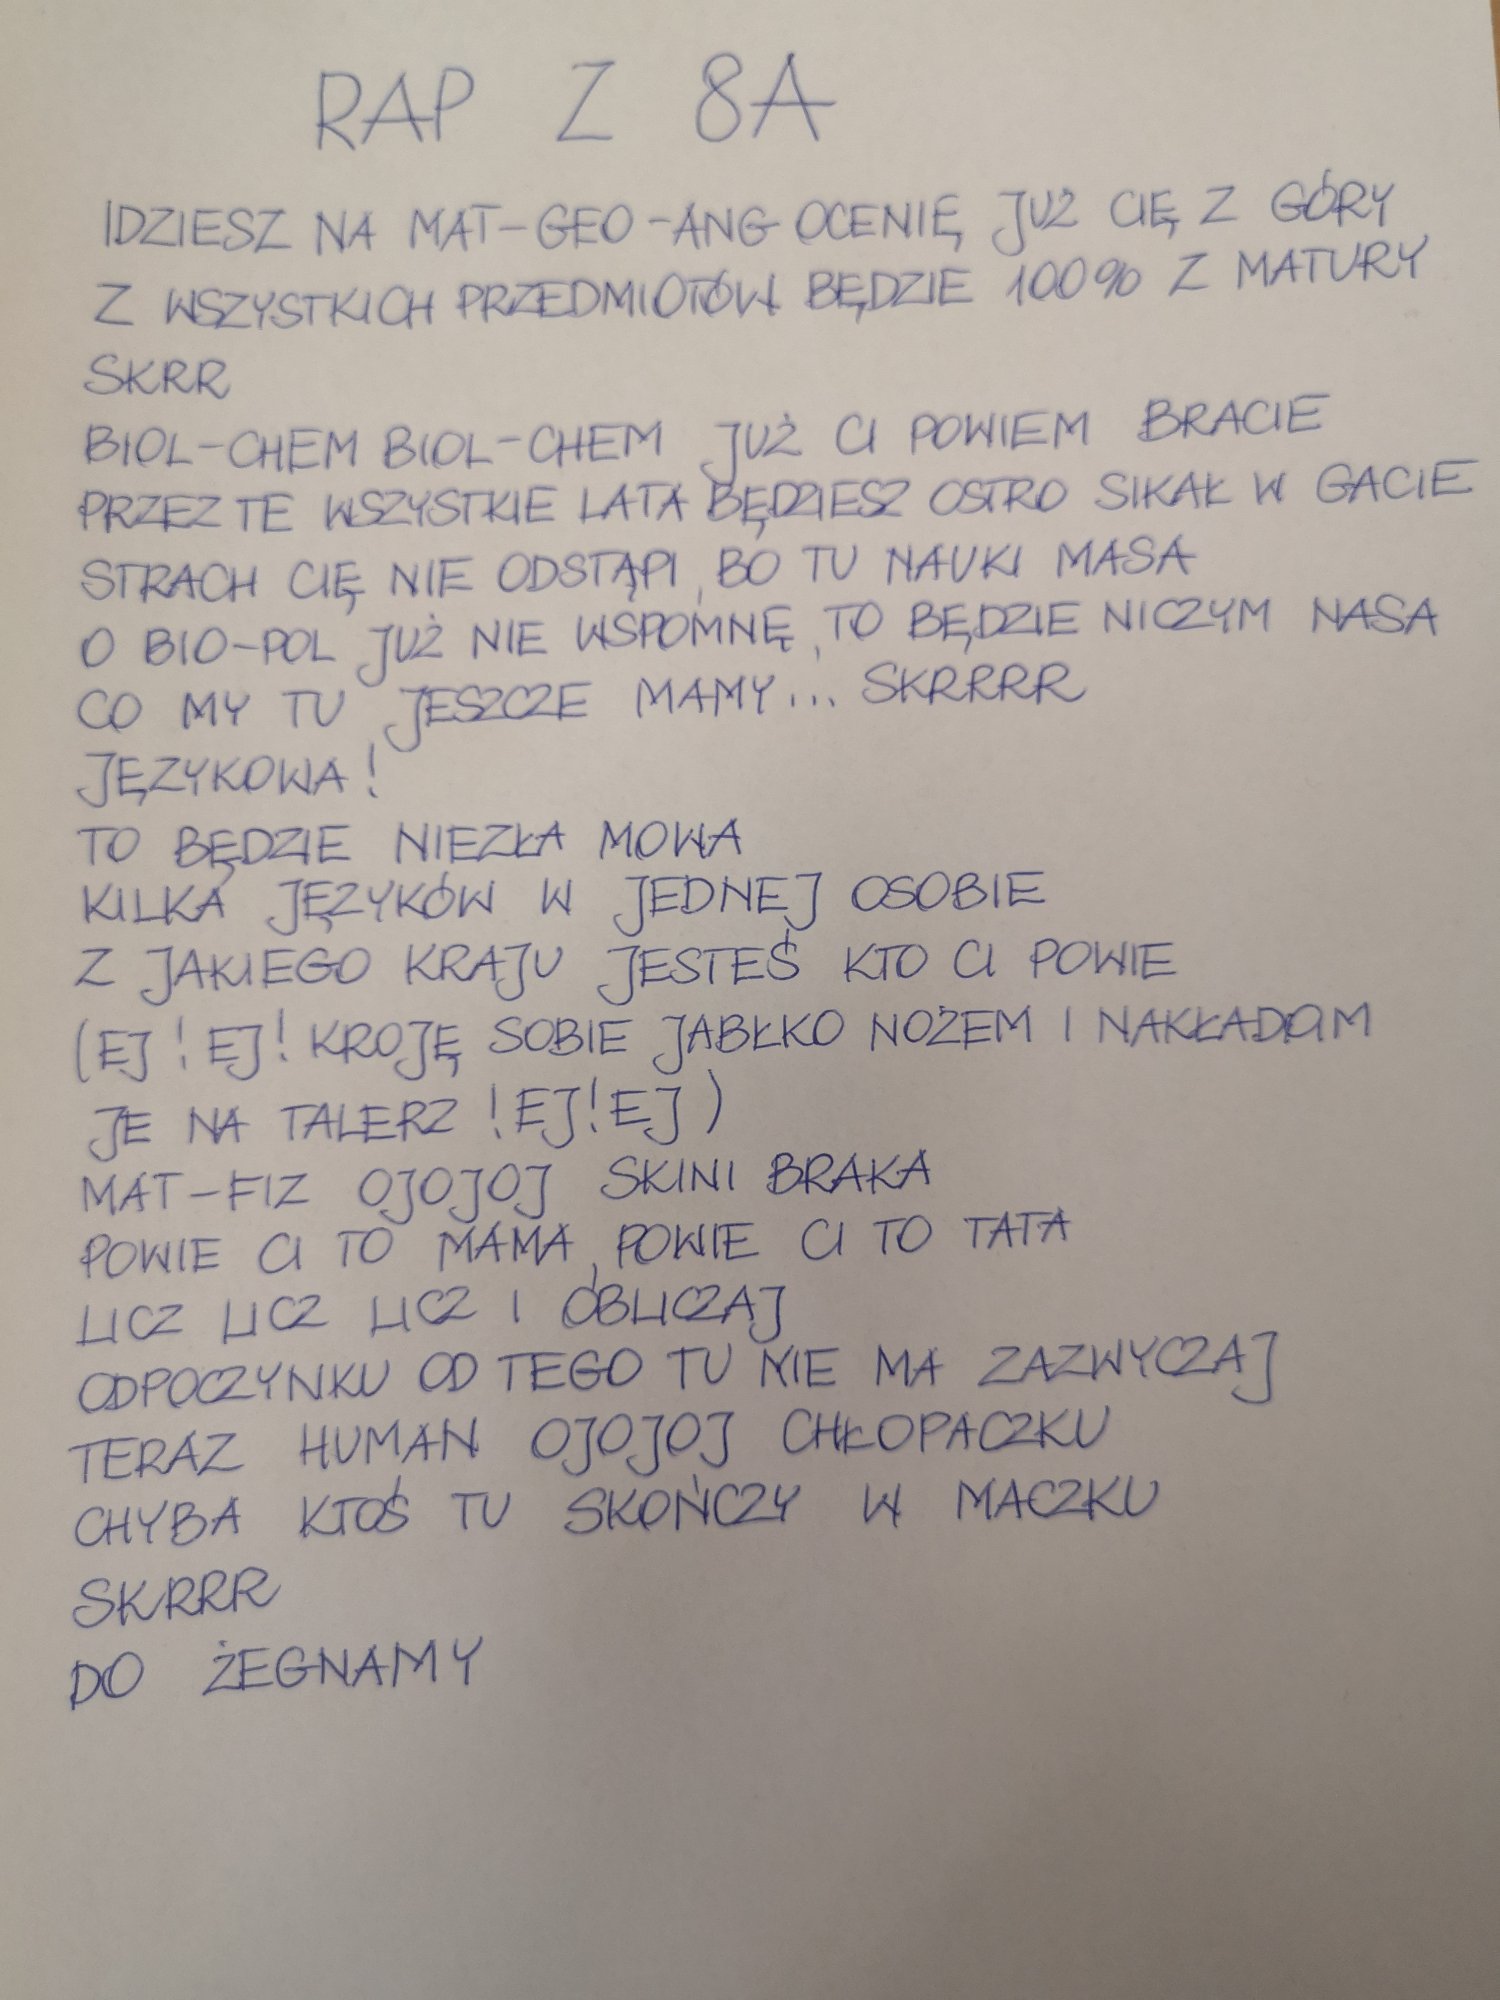 RAP Z 8A
IDZIESZ NA MAT-GEO-ANG OCENIĘ JUŻ CIĘ Z GÓRY
Z WSZYSTKICH PRZEDMIOTÓW BĘDZIE 100% Z MATURY
SKRR
BIOL-CHEM BIOL-CHEM JUŻ CI POWIEM BRACIE
PRZEZ TE WSZYSTKIE LATA BĘDZIESZ OSTRO SIKAŁ W GACIE
STRACH CIĘ NIE ODSTĄPI, BO TU NAUKI MASA
O BIO-POL JUŻ NIE WSPOMNĘ, TO BĘDZIE NICZYM NASA
CO MY TU JESZCZE MAMY... SKRRRR
JĘZYKOWA!
TO BĘDZIE NIEZŁA MOWA
KILKA JĘZYKÓW W JEDNEJ OSOBIE
Z JAKIEGO KRAJU JESTEŚ KTO CI POWIE
(EJ! EJ! KROJĘ SOBIE JABŁKO NOŻEM I NAKŁADAM
JE NA TALERZ! EJ! EJ)
MAT-FIZ OJOJOJ SKINI BRAKA
POWIE CI TO MAMA, POWIE CI TO TATA
LICZ LICZ LICZ I OBLICZAJ
ODPOCZYNKU OD TEGO TU NIE MA ZAZWYCZAJ
TERAZ HUMAN OJOJOJ CHŁOPACZKU
CHYBA KTOŚ TU SKOŃCZY W MACZKU
SKRRR
DO ŻEGNAMY